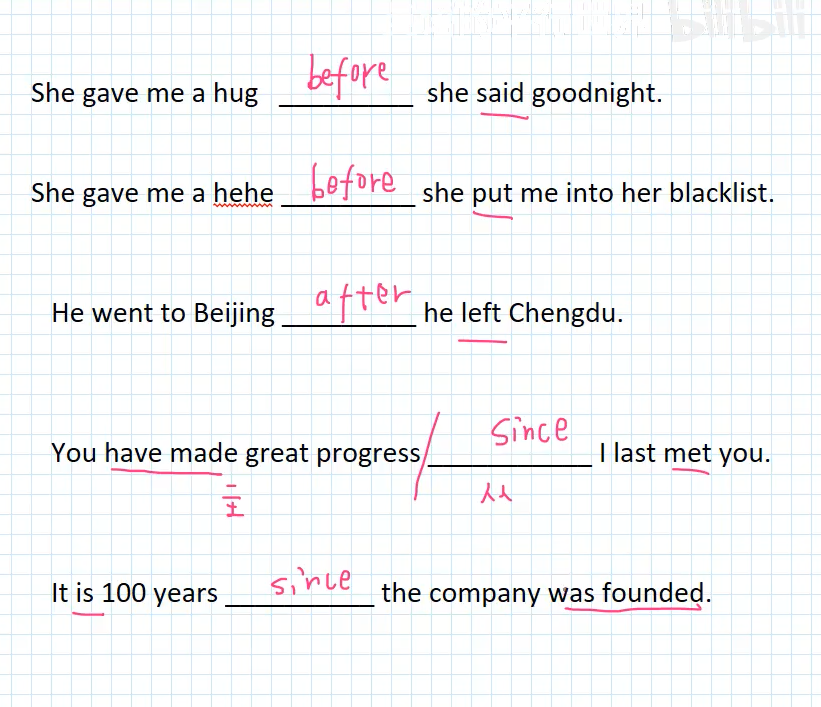 bilibili
She gave me a hug before she said goodnight.
She gave me a hehe before she put me into her blacklist.
He went to Beijing after he left Chengdu.
You have made great progress since I last met you.
主 从
It is 100 years since the company was founded.